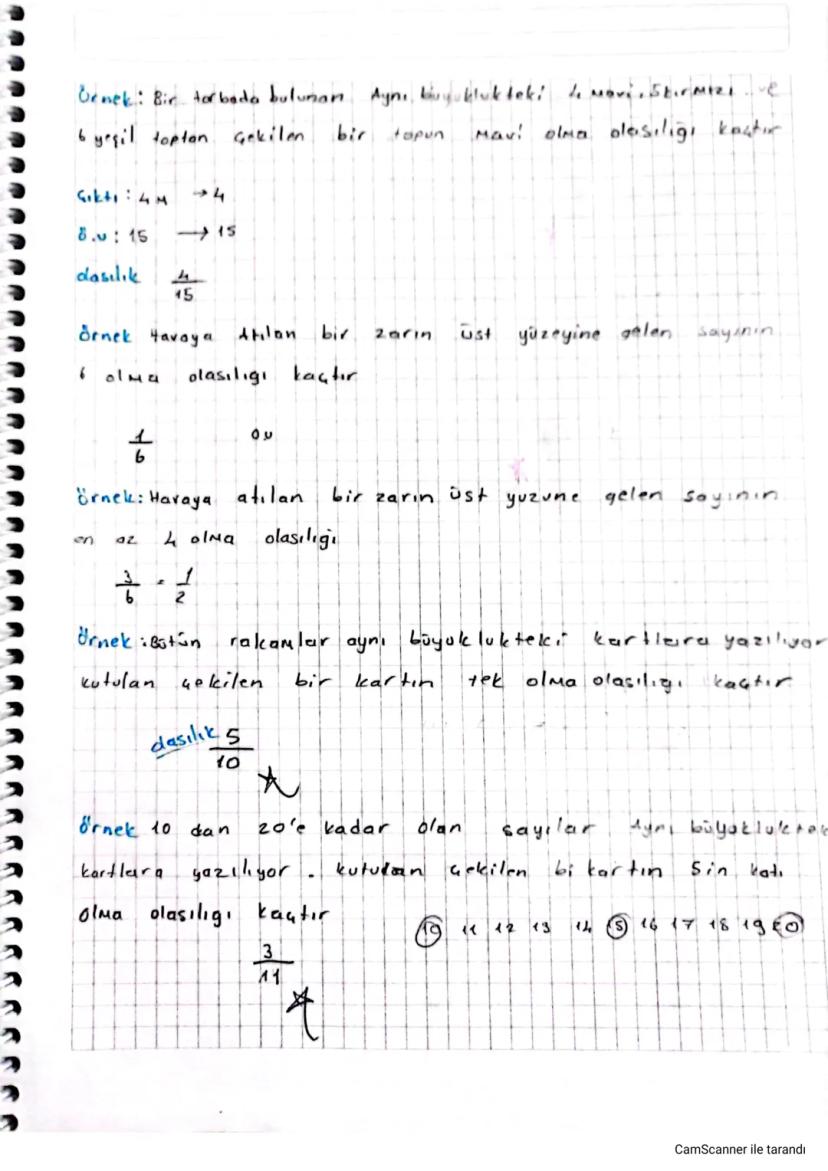 Örnek: Bir torbada bulunan Aynı büyüklükteki 4 Mavi, 5 kırmızı ve
6 yeşil toptan çekilen bir topun Mavi olma olasılığı kaçtır
Çıktı: 4M → 4
ö.u: 15 → 15
olasılık 4/15
Örnek Havaya Atılan bir zarın üst yüzeyine gelen sayının
6 olma olasılığı kaçtır
1/6 ou
Örnek: Havaya atılan bir zarın üst yuzune gelen sayının
en az 4 olma olasılığı
3/6 = 1/2
Örnek: Bütün rakamlar aynı büyüklükteki kartlara yazılıyor
kutulan çekilen bir kartın tek olma olasılığı kaçtır
olasılık 5/10
Örnek 10 dan 20'e kadar olan sayılar Aynı büyüklüktek
kartlara yazılıyor. kutudan çekilen bi kartın 5in katı
olma olasılığı kaçtır
10 11 12 13 14 15 16 17 18 19 20
3/11
CamScanner ile tarandı